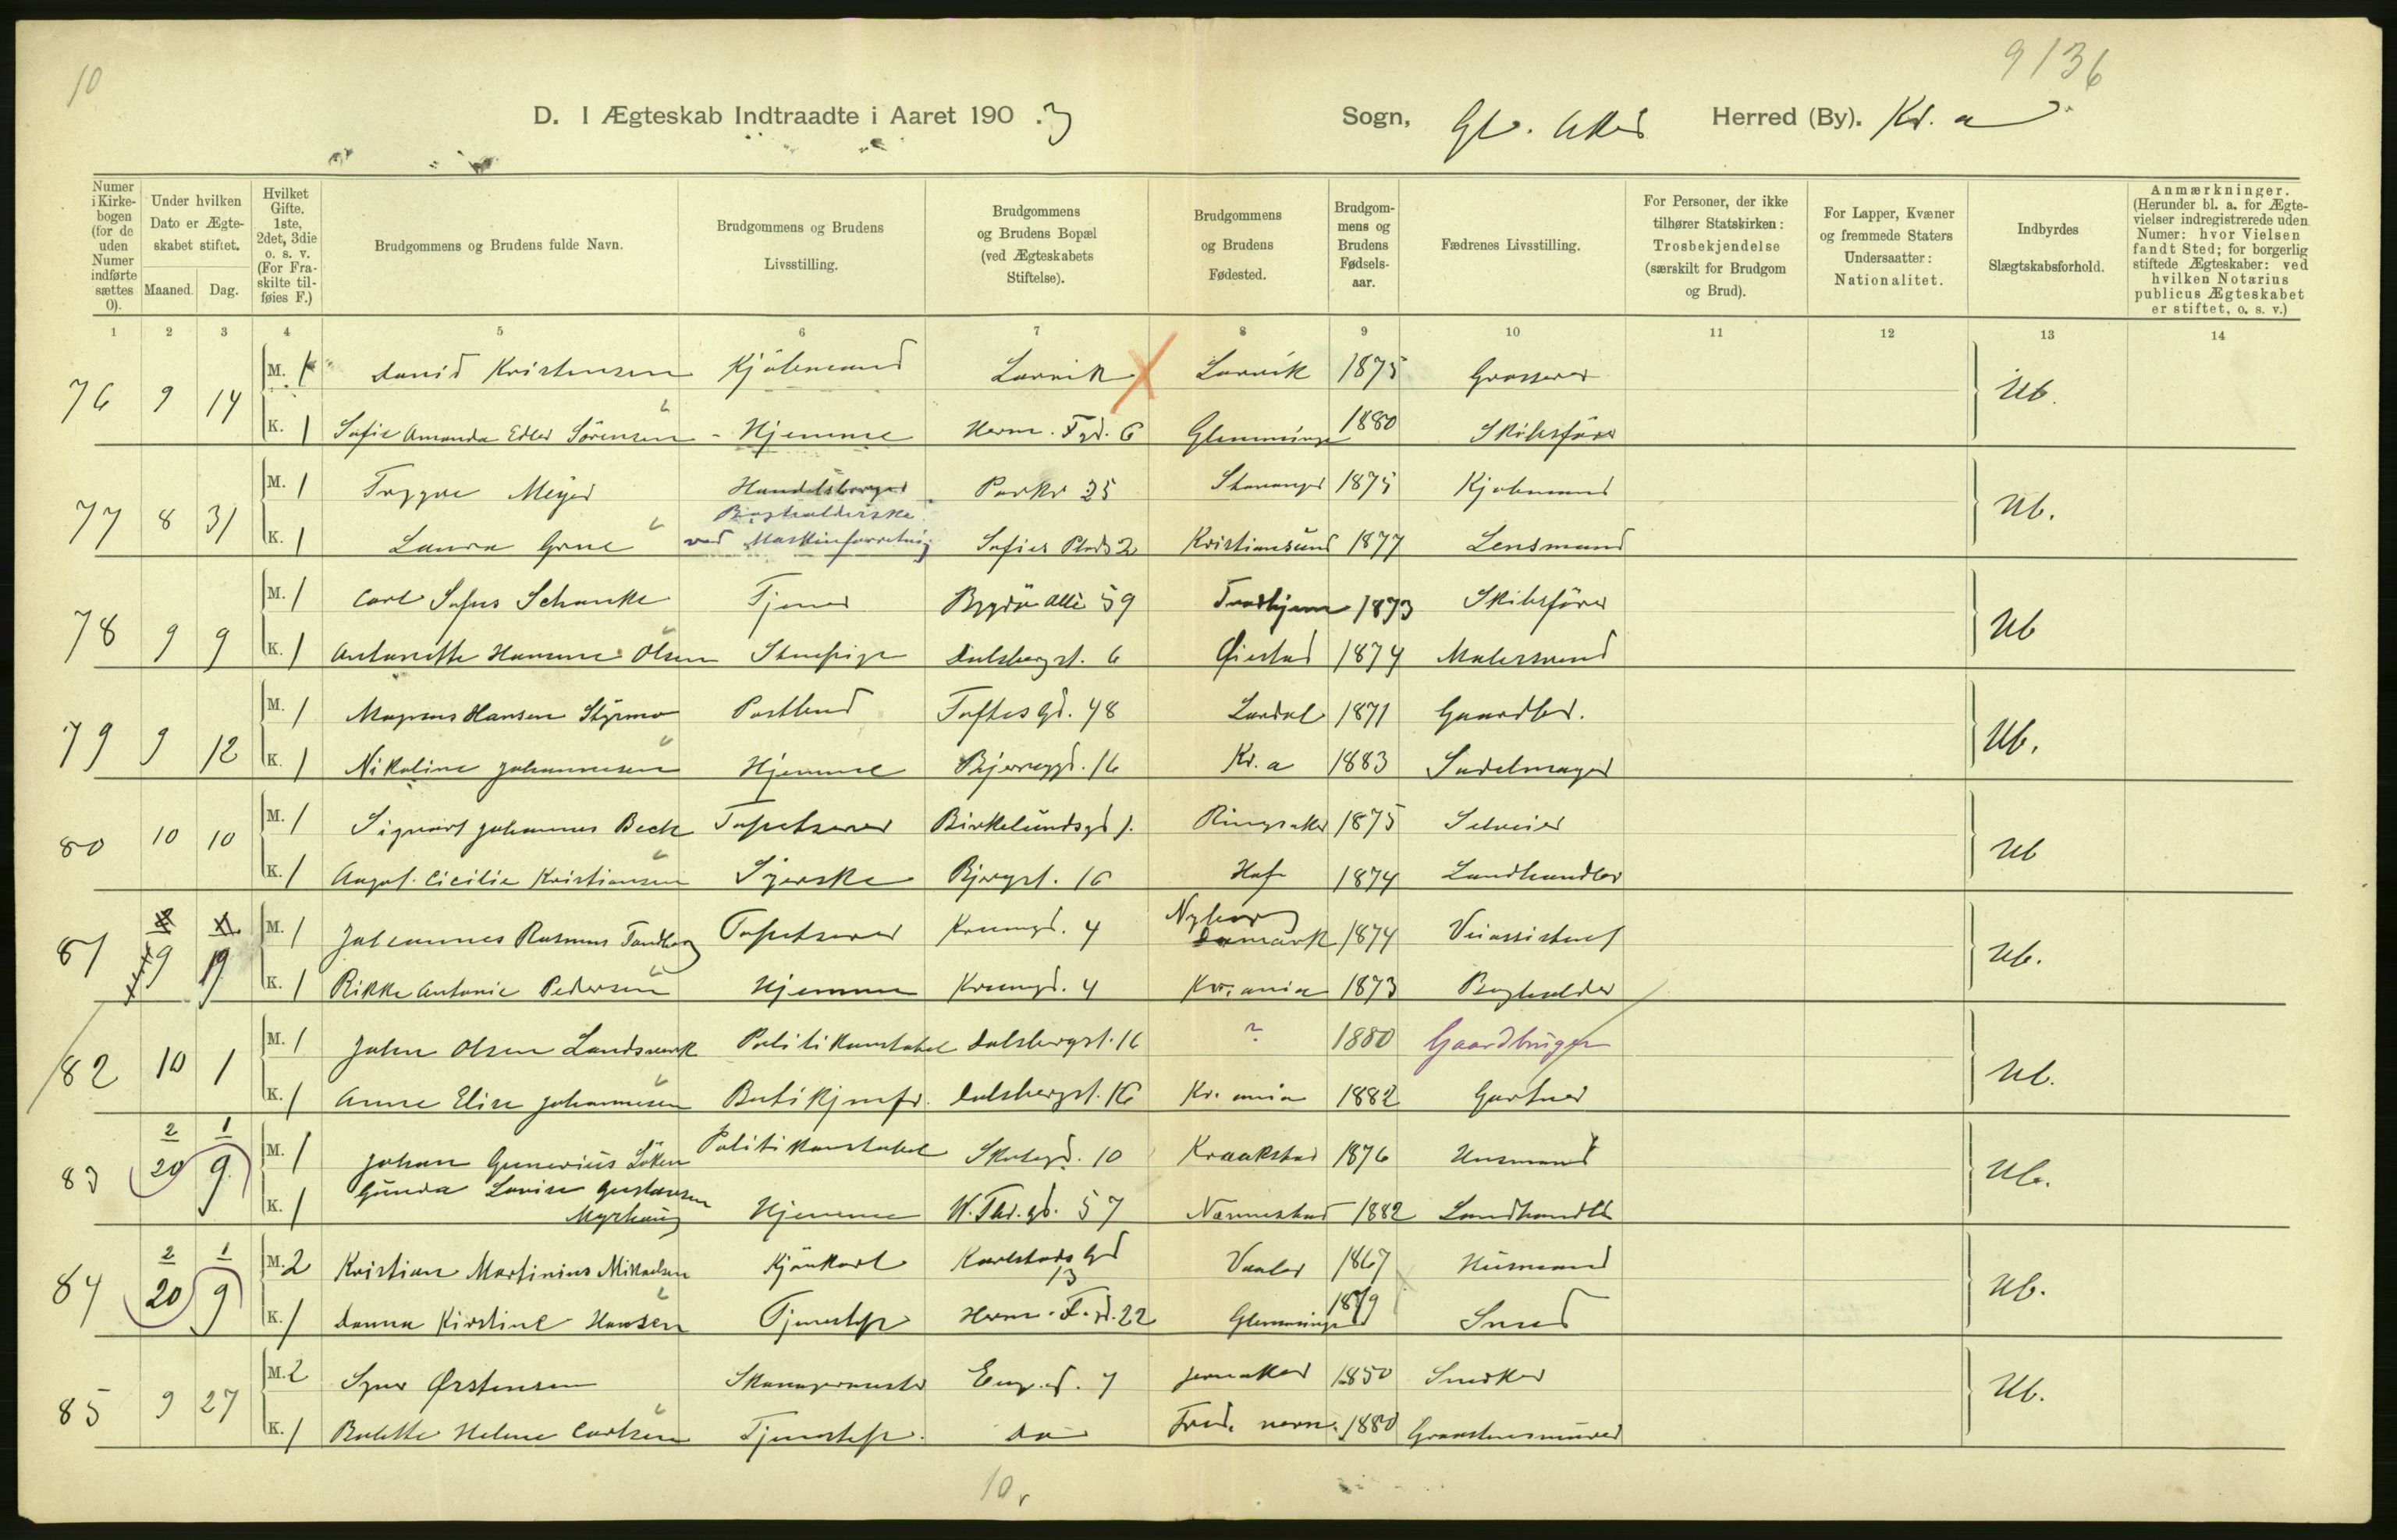 10
9136
D. I Ægteskab Indtraadte i Aaret 190 .3 Sogn, Gl. Aker Herred (By). Kr.a
Numer i Kirke-bogen (for de uden Numer indførte sættes 0).
Under hvilken Dato er Ægte-skabet stiftet. Maaned. Dag.
Hvilket Gifte. 1ste, 2det, 3die o. s. v. (For Fra-skilte til-føies F.)
Brudgommens og Brudens fulde Navn.
Brudgommens og Brudens Livsstilling.
Brudgommens og Brudens Bopæl (ved Ægteskabets Stiftelse).
Brudgommens og Brudens Fødested.
Brudgom-mens og Brudens Fødsels-aar.
Fædrenes Livsstilling.
For Personer, der ikke tilhører Statskirken: Trosbekjendelse (særskilt for Brudgom og Brud).
For Lapper, Kvæner og fremmede Staters Undersaatter: Nationalitet.
Indbyrdes Slægtskabsforhold.
Anmærkninger. (Herunder bl. a. for Ægte-vielser indregistrerede uden Numer: hvor Vielsen fandt Sted; for borgerlig stiftede Ægteskaber: ved hvilken Notarius publicus Ægteskabet er stiftet, o. s. v.)
1 2 3 4 5 6 7 8 9 10 11 12 13 14
76 9 14 M. 1 David Kristensen Kjöbmand Larvik Larvik 1875 Grosserer Ub.
K. 1 Sofie Amanda Sörensen - Hjemme Herm. Fgd. 6 Glemminge 1880 Skibsförer
77 8 31 M. 1 Trygve Meyer Handelsborger Parkv 25 Stavanger 1875 Kjöbmand Ub.
Bogholderske
K. 1 Laura Grue ved Maskinforretnig Sofies Plads 2 Kristiansund 1877 Lensmand
78 9 9 M. 1 Carl Sofus Schanke Tjener Bygdö Allè 59 Trondhjem 1873 Skibsförer Ub
K. 1 Antonette Hansine Olsen Stuepige Dalsbergst. 6 Øiestad 1874 Malersvend
79 9 12 M. 1 Magnus Hansen Styrmo Postbud Toftes Gd. 48 Lardal 1871 Gaardbr. Ub.
K. 1 Nikoline Johannesen Hjemme Bjerreggd. 16 Kr.a 1883 Sadelmager
80 10 10 M. 1 Sigvart Johannes Beck Tapetserer Birkelundsgd 1. Ringsaker 1875 Selveier Ub
K. 1 August. Cicilie Kristiansen Syerske Bjergst. 16 Hof 1874 Landhandler
81 9 19 M. 1 Johannes Rasmus Tandberg Tapetserer Krumgd. 4 Nyborg Danmark 1874 Veiassistent Ub.
K. 1 Rikke Antonie Pedersen Hjemme Krumgd. 4 Kr.ania 1873 Bogholder
82 10 1 M. 1 Johan Olsen Landsverk Politikonstabel Dalsbergst. 16 ? 1880 Gaardbruger Ub.
K. 1 Anne Elise Johannesen Butikjomfr. Dalsbergst. 16 Kr.ania 1882 Gartner
2 1
83 20 9 M. 1 Johan Gunerius Löken Politikonstabel Skolegd. 10 Kraakstad 1876 Husmand Ub.
K. 1 Gunda Lovise Gustavsen Myrhaug Hjemme W. Thr. gd. 57 Nannestad 1882 Landhandler
2 1
84 20 9 M. 2 Kristian Martinius Mikaelsen Kjörekarl Karlstads Gd 13 Vaaler 1867 Husmand Ub.
K. 1 Danna Kirstine Hansen Tjenestep Herm. F. gd. 22 Glemminge 1879 Smed
85 9 27 M. 2 Syver Ørstensen Engd. 7 Jevnaker 1850 Snedker Ub.
K. 1 Bolette Helene Carlsen Tjenestep. do Fred. værn. 1880 Graastensmurer
10.